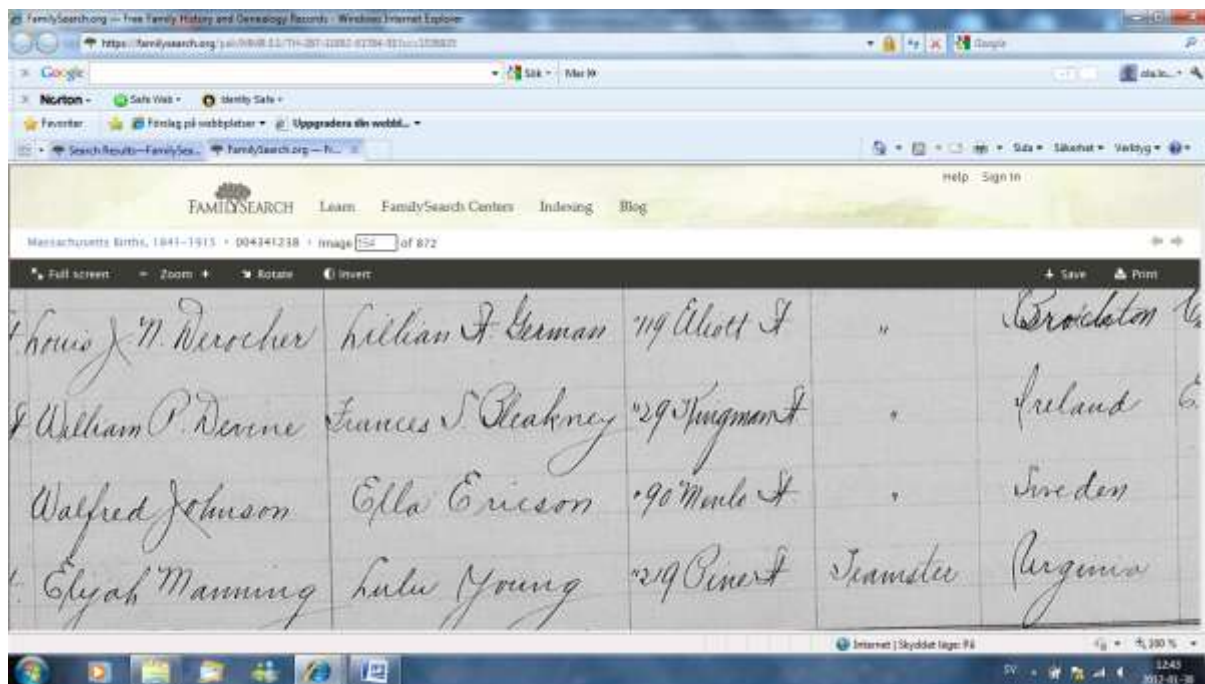 FamilySearch.org — Free Family History and Genealogy Records - Windows Internet Explorer
https://familysearch.org/
Google
Google Sök Mer »
Norton Safe Web Identity Safe
Favoriter Förslag på webbplatser Uppgradera din webbl...
Search Results—FamilySea... FamilySearch.org — Fr... Sida Säkerhet Verktyg
Help Sign In
FAMILYSEARCH Learn FamilySearch Centers Indexing Blog
Massachusetts Births, 1841-1915 004341238 image 154 of 872
Full screen - Zoom + Rotate Invert Save Print
Louis J. N. Derocher Lillian St. German "119 Aliott St " Brockton
William P. Devine Frances S. Bleakney "29 Kingman St " Ireland
Walfred Johnson Ella Ericson "90 Menlo St " Sweden
Elijah Manning Lulu Young "219 Pine St Teamster Virginia
Internet | Skyddat läge: På 100 %
SV 12:43
2012-01-30